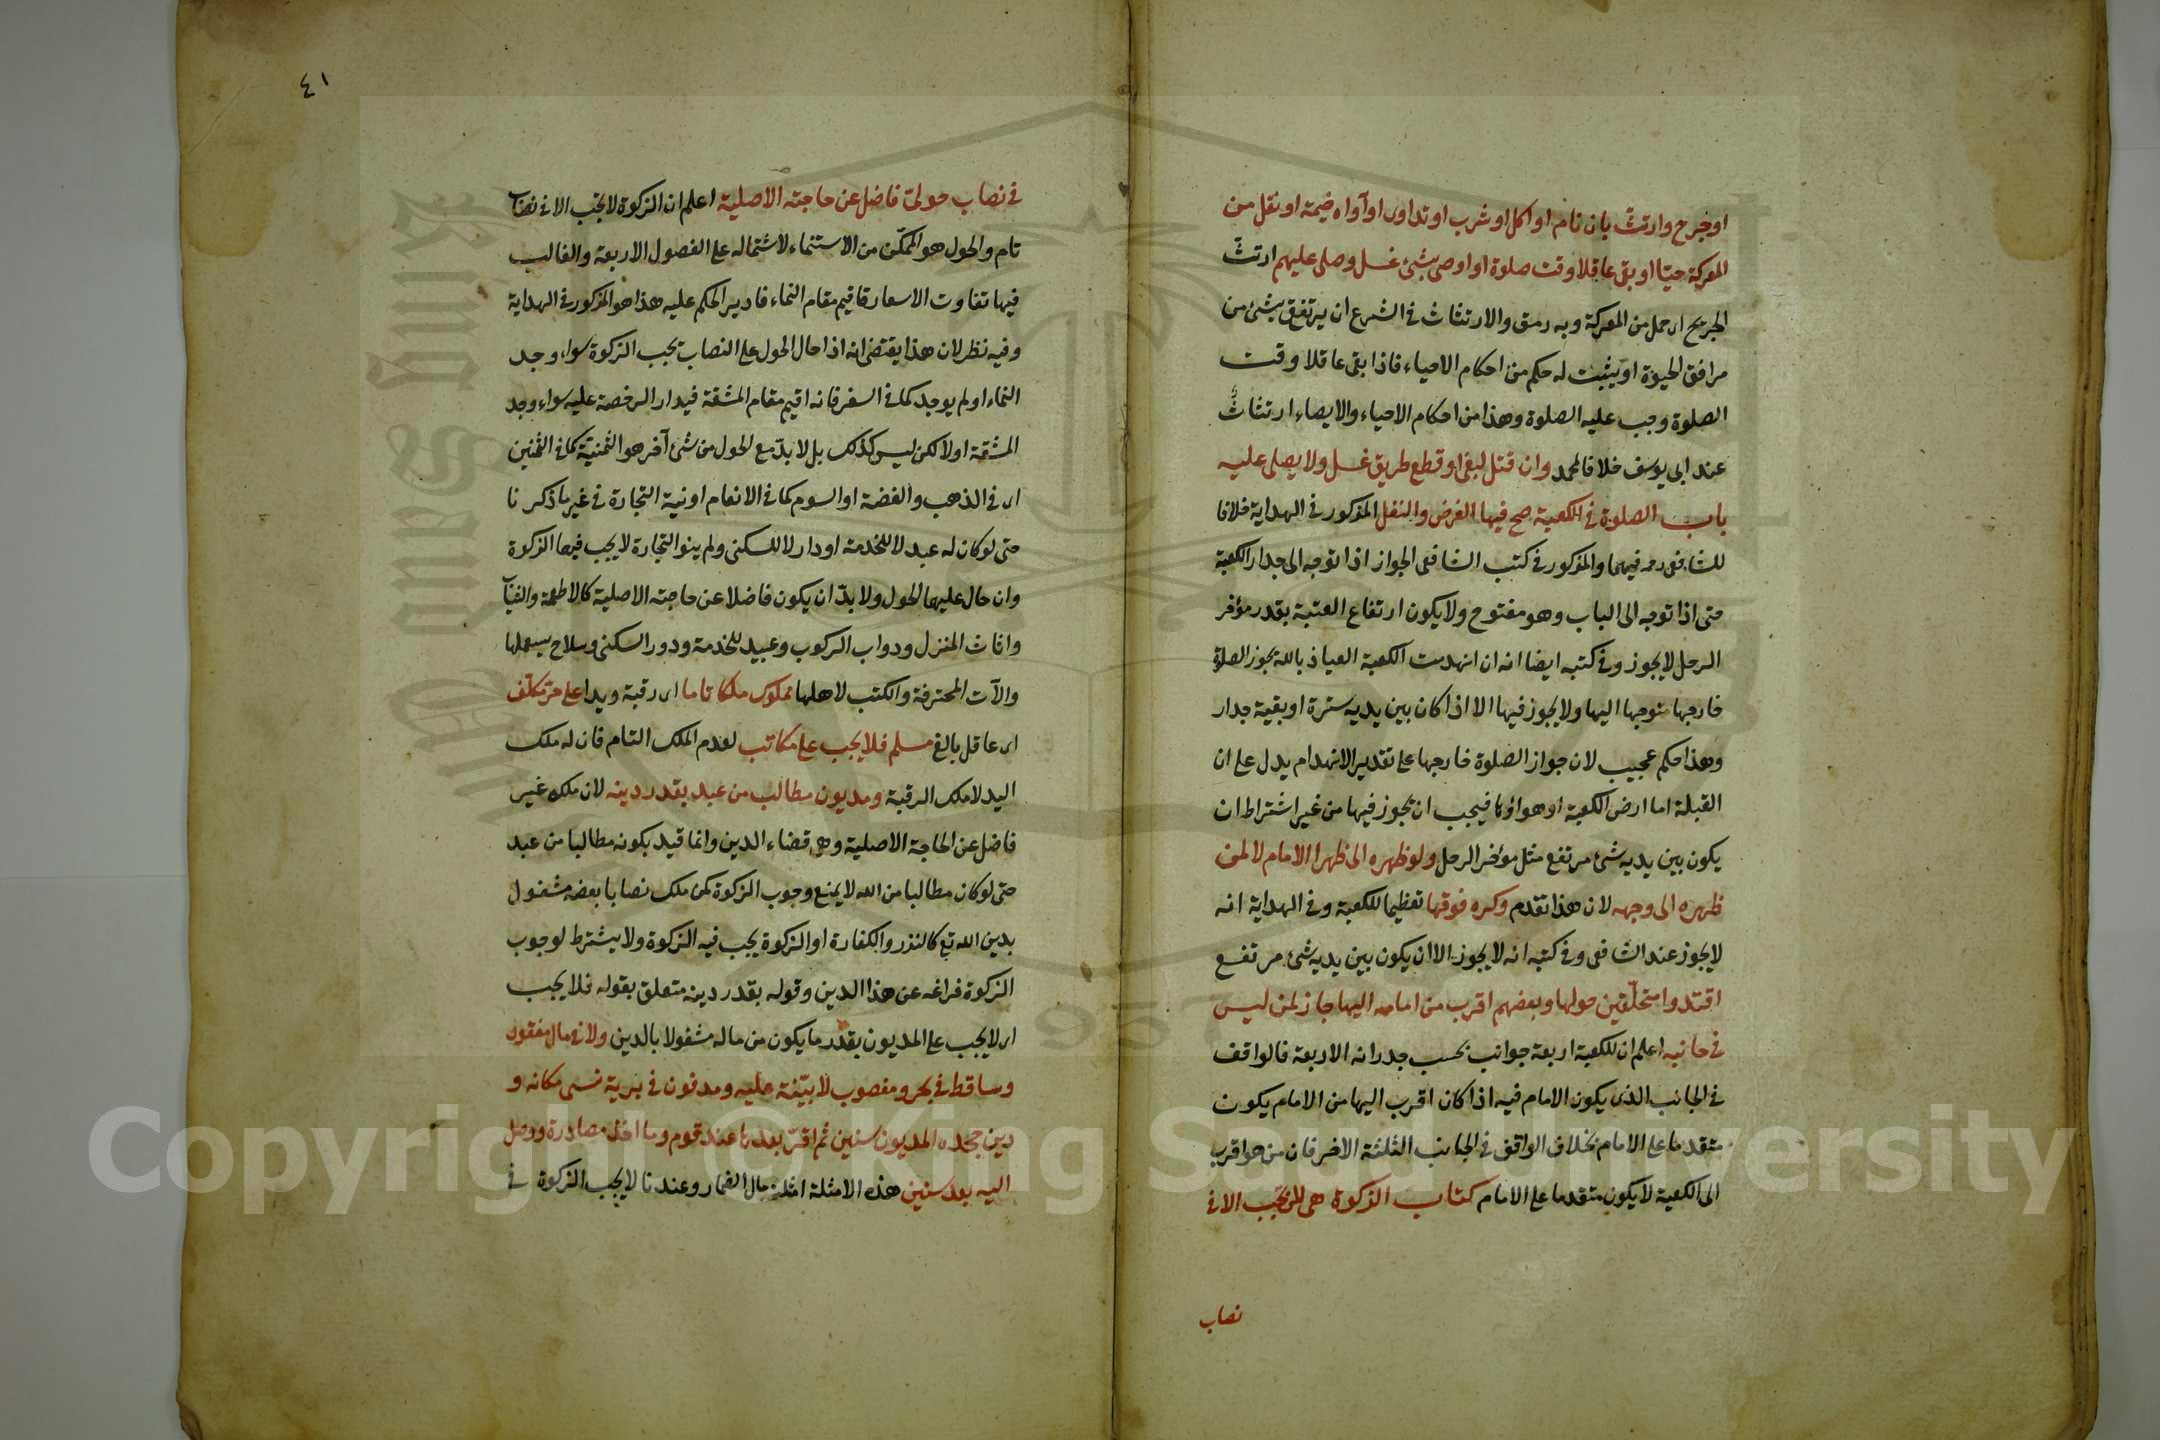 او جرح وارتثّ بان نام او اكل او شرب او تداوى او آواه خيمة او نقل من
المعركة حيّا او بقى عاقلا وقت صلوة او اوصى بشئ غسل وصلى عليهم ارتثّ
الجريح اى حمل من المعركة وبه رمق والارتثاث فى الشرع ان يرتفق بشئ من
مرافق الحيوة او يثبت له حكم من احكام الاحياء فاذا بقى عاقلا وقت
الصلوة وجب عليه الصلوة وهذا من احكام الاحياء والايصاء ارتثاث
عند ابى يوسف خلافا لمحمد وان قتل لبغى او قطع طريق غسل ولا يصلى عليه
باب الصلوة فى الكعبة صح فيها الفرض والنفل المذكور فى الهداية خلافا
للشافعى رحمه فيهما والمذكور فى كتب الشافعى الجواز اذا توجه الى جدار الكعبة
حتى اذا توجه الى الباب وهو مفتوح ولا يكون ارتفاع العتبة بقدر مؤخر
الرحل لا يجوز وفى كتبه ايضا انه ان انهدمت الكعبة العياذ بالله يجوز الصلوة
خارجها متوجها اليها ولا يجوز فيها الا اذا كان بين يديه سترة او بقية جدار
وهذا حكم عجيب لان جواز الصلوة خارجها على تقدير الانهدام يدل على ان
القبلة اما ارض الكعبة او هواؤها فيجب ان يجوز فيها من غير اشتراط ان
يكون بين يديه شئ مرتفع مثل مؤخر الرحل ولو ظهره الى ظهر الامام لا لمن
ظهره الى وجهه لان هذا تقدم وكره فوقها تعظيما للكعبة وفى الهداية انه
لا يجوز عند الشافعى وفى كتبه انه لا يجوز الا ان يكون بين يديه شئ مرتفع
اقتدوا متحلّقين حولها وبعضهم اقرب من امامه اليها جاز لمن ليس
فى جانبه اعلم ان للكعبة اربعة جوانب بحسب جدرانه الاربعة فالواقف
فى الجانب الذى يكون الامام فيه اذا كان اقرب اليها من الامام يكون
متقدما على الامام بخلاف الواقف فى الجانب الثلثة الاخر فان من هو اقرب
الى الكعبة لا يكون متقدما على الامام كتاب الزكوة هى لا يجب الا فى
نصاب
٤١
فى نصاب حولىّ فاضل عن حاجته الاصلية اعلم ان الزكوة لا يجب الا فى نصاب
تام والحول هو الممكّن من الاستنماء لاشتماله على الفصول الاربعة والغالب
فيها تفاوت الاسعار فاقيم مقام النماء فادير الحكم عليه هذا هو المذكور فى الهداية
وفيه نظر لان هذا يقتضى انه اذا حال الحول على النصاب يجب الزكوة سواء وجد
النماء او لم يوجد كما فى السفر فانه اقيم مقام المشقة فيدار الرخصة عليه سواء وجد
المشقة او لا لكن ليس كذلك بل لا بدّ مع الحول من شئ آخر هو الثمنيّة كما فى الثمنين
اى فى الذهب والفضة او السوم كما فى الانعام او نية التجارة فى غير ما ذكرنا
حتى لو كان له عبد لا للخدمة او دار لا للسكنى ولم ينو التجارة لا يجب فيهما الزكوة
وان حال عليهما الحول ولا بدّ ان يكون فاضلا عن حاجته الاصلية كالاطعمة والثياب
واثاث المنزل ودواب الركوب وعبيد للخدمة ودور السكنى وسلاح يستعملها
والآت المحترفة والكتب لاهلها مملوك ملكا تاما اى رقبة ويدا على حرّ مكلّف
اى عاقل بالغ مسلم فلا يجب على مكاتب لعدم الملك التام فان له ملك
اليد لا ملك الرقبة ومديون مطالب من عبد بقدر دينه لان ملكه غير
فاضل عن الحاجة الاصلية وهى قضاء الدين وانما قيد بكونه مطالبا من عبد
حتى لو كان مطالبا من الله لا يمنع وجوب الزكوة كمن ملك نصابا بعضه مشغول
بدين الله تع كالنذر والكفارة او الزكوة يجب فيه الزكوة ولا يشترط لوجوب
الزكوة فراغه عن هذا الدين وقوله بقدر دينه متعلق بقوله فلا يجب
اى لا يجب على المديون بقدر ما يكون من ماله مشغولا بالدين ولا فى مال مفقود
وساقط فى بحر ومغصوب لا بيّنة عليه ومدفون فى برية نسى مكانه و
دين جحده المديون سنين ثم اقرّ بعدها عند قوم وما اخذ مصادرة ووصل
اليه بعد سنين هذه الامثلة امثلة مال الضمار وعندنا لا يجب الزكوة فى
Copyright © King Saud University